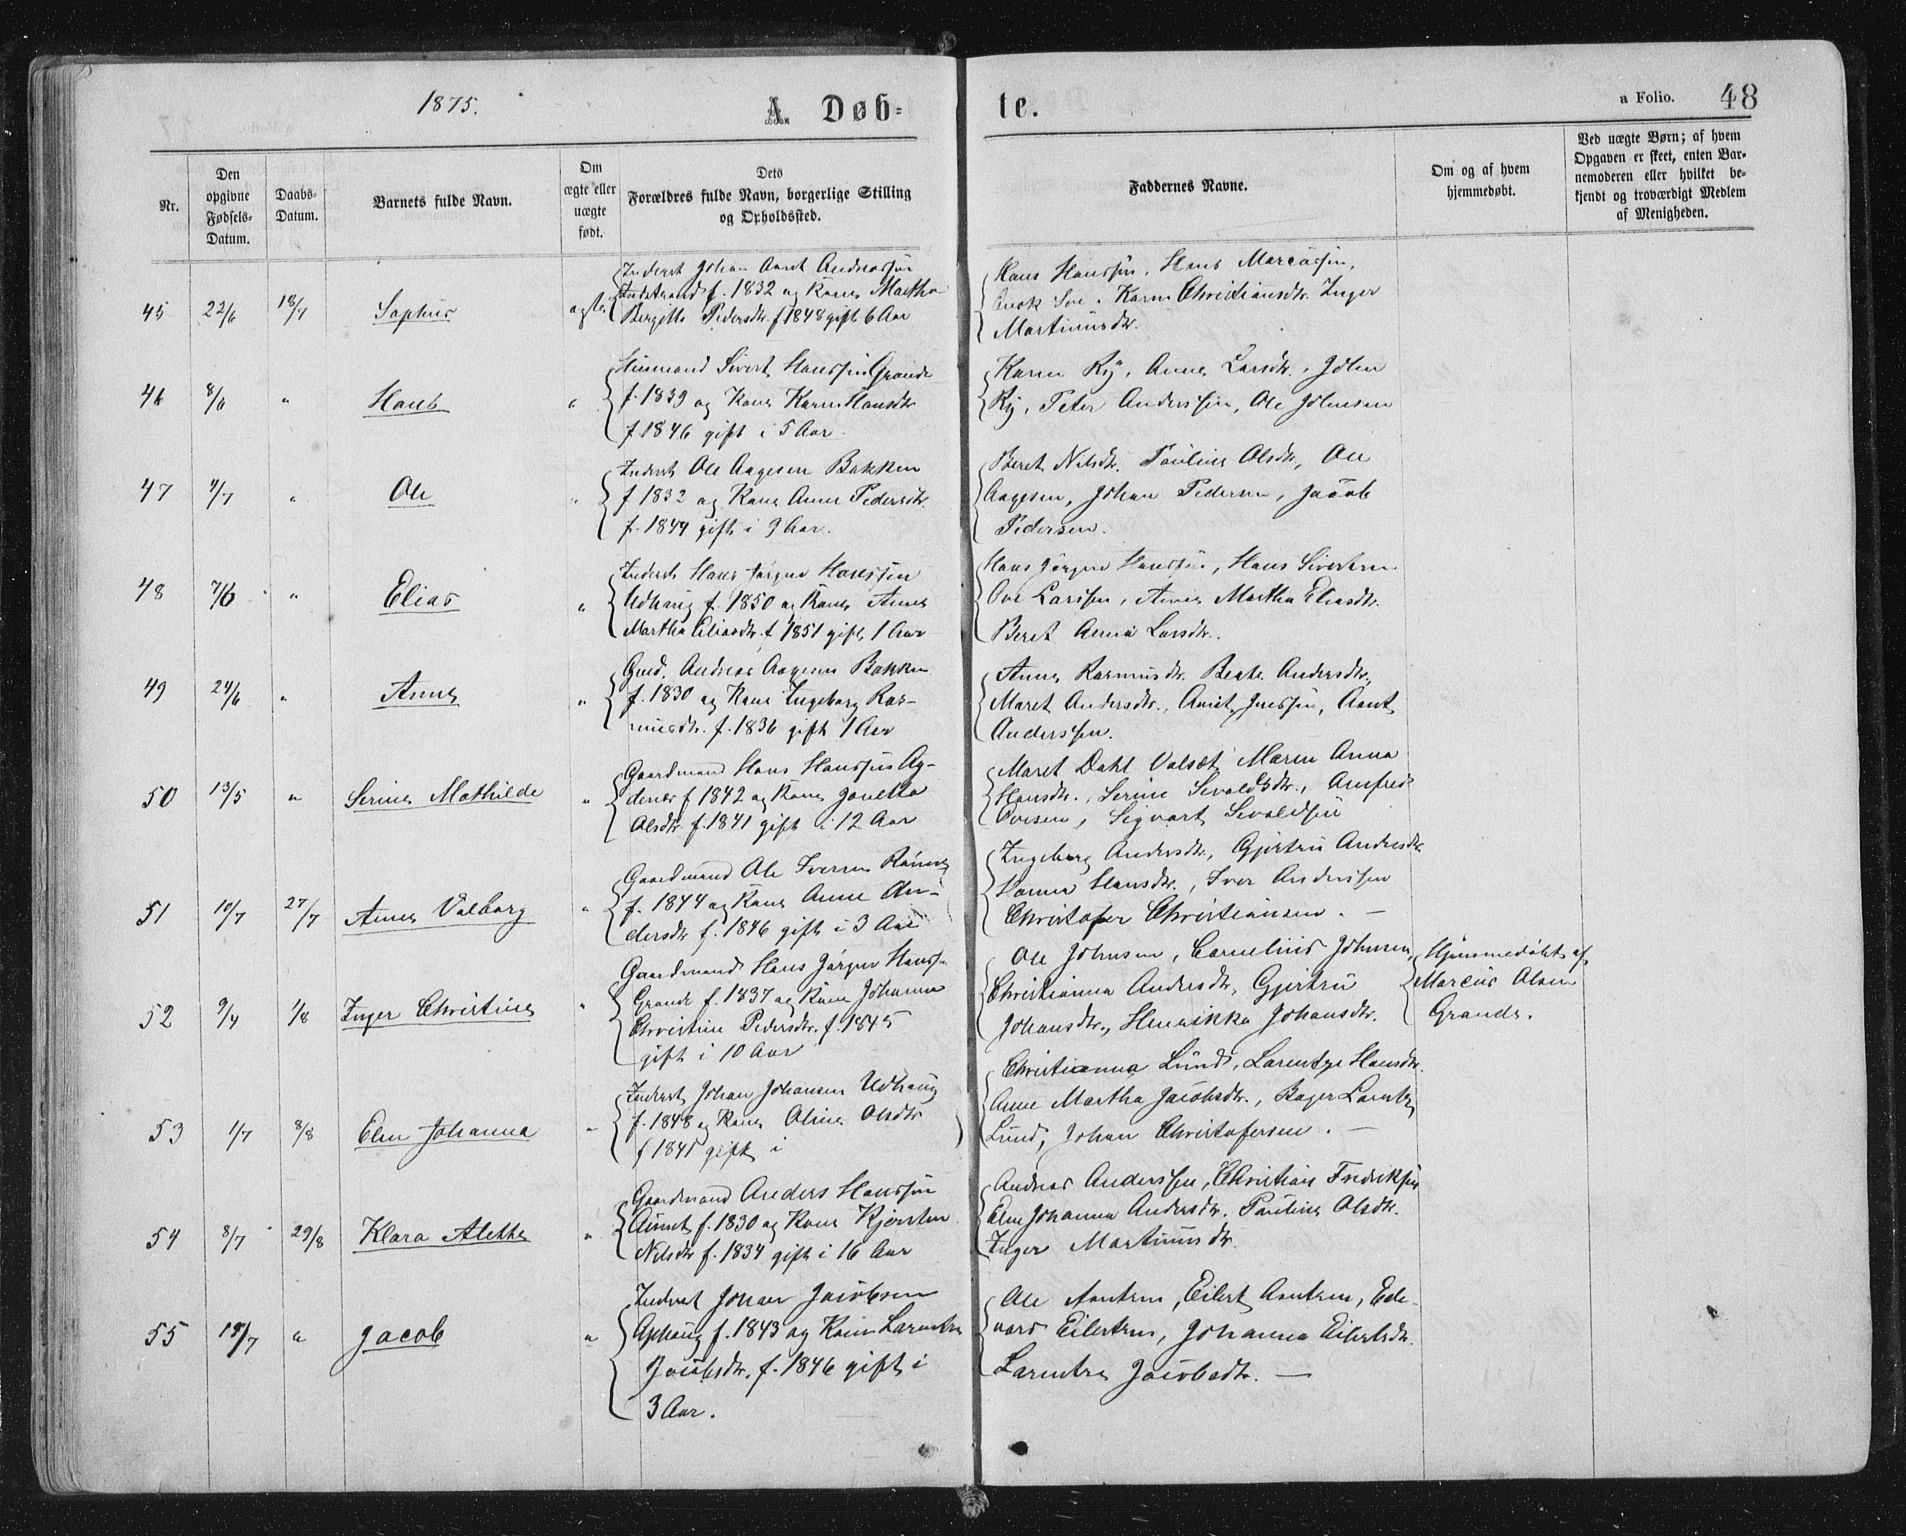 1875.
A. Døb-
te.
a Folio. 48
Nr.
Den
opgivne
Fødsels-
Datum.
Daabs-
Datum.
Barnets fulde Navn.
Om
ægte eller
uægte
født.
Dets
Forældres fulde Navn, borgerlige Stilling
og Opholdssted.
Faddernes Navne.
Om og af hvem
hjemmedøbt.
Ved uægte Børn; af hvem
Opgaven er skeet, enten Bar-
nemoderen eller hvilket be-
kjendt og troværdigt Medlem
af Menigheden.
45 22/6 18/7 Sophus ægte
Inderst Johan Arnt Andreassøn
f. 1832 og Kone Martha
Bergitte Pedersdtr. f 1848 gift 6 Aar
Hans Hanssøn, Hans Marcussøn,
Karen Christiansdtr. Inger
Martinusdtr.
46 8/6 " Hans "
Huusmand Sivert Hanssøn Grande
f. 1839 og Kone Karen Hansdtr
f. 1846 gift i 5 Aar.
Karen Ry, Anne Larsdtr., John
Ry, Peter Anderssøn, Ole Johnsen
47 4/7 " Ole "
Inderst Ole Aagesen Bakken
f 1832 og Kone Anne Pedersdtr.
f. 1844 gift i 9 Aar.
Beret Nilsdtr. Pauline Olsdtr, Ole
Aagesen, Johan Pedersen, Jacob
Pedersen.
48 7/6 " Elias "
Inderst Hans Jørgen Hanssen
Udhaug f. 1850 og Kone Anne
Martha Eliasdtr. f 1851 gift 1 Aar
Hans Jørgen Hanssøn, Hans Sivertsen
Ove Larssen, Anne Martha Eliasdtr.
Beret Anna Larsdtr.
49 24/6 " Anne "
Gmd. Andreas Aagesen Bakken
f. 1830 og Kone Ingeborg Ras-
musdtr. f. 1836 gift 1 Aar
Anne Rasmusdtr. Beate Andersdtr.,
Maret Andersdtr., Arnt Jenssøn, Arnt
Anderssøn.
50 13/5 " Serine Mathilde "
Gaardmand Hans Hanssøn Ag-
denes f 1842 og Kone Jonetta
Olsdtr f. 1841 gift i 12 Aar
Maret Dahl Valsøt, Maren Anna
Hansdtr., Serine Sivaldsdtr., Arnfred
Ovesen, Sigvart Sivaldsøn
51 10/7 27/7 Anne Valborg "
Gaardmand Ole Iversen
f. 1844 og Kone Anne An-
dersdtr f. 1846 gift i 3 Aar
Ingeborg Andersdtr, Gjertru Andersdtr
Hanna Hansdtr., Iver Anderssen
Christofer Christiansen. —
52 9/4 1/8 Inger Christine "
Gaardmand Hans Jørgen Hanss.
Grande f. 1837 og Kone Johanna
Christine Pedersdtr. f. 1845
gift i 10 Aar
Ole Johnsen, Cornelius Johnsen,
Christianna Andersdtr, Gjertru
Johansdtr., Henrikka Johansdtr.
Hjemmedøbt af
Marcus Olsen
Grande.
53 1/7 8/8 Elen Johanna "
Inderst Johan Johansen Udhaug
f. 1848 og Kone Oline Olsdtr
f 1845 gift i
Christianna Lund, Larentze Hansdtr.
Anne Martha Jacobsdtr.,
Lund, Johan Christofersen. —
54 8/7 29/8 Klara Alette "
Gaardmand Anders Hanssøn
f. 1830 og Kone Kjersten
Nilsdtr f. 1834 gift i 16 Aar
Andreas Anderssen, Christian Fredrikssøn
Elen Johanna Andersdtr. Pauline Olsdtr.
Inger Martinusdtr.
55 15/7 " Jacob "
Inderst Johan Jacobsen
Aphaug f. 1843 og Kone Larentze
Jacobsdtr. f. 1846 gift i
3 Aar.
Ole Arntsen, Eilert Arntsen, Ed-
vard Eilertsen, Johanna Eilertsdtr.
Larentze Jacobsdtr. —